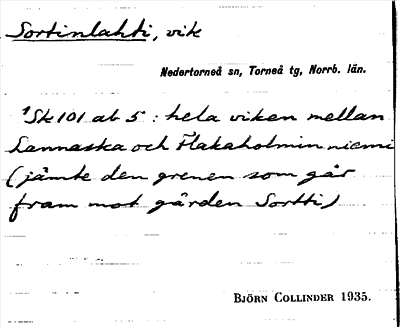 Sortinlahti, vik
Nedertorneå sn, Torneå tg, Norrb. län.
1Sk 101 ab 5 : hela viken mellan
Lannaska och Flakaholmin niemi
(jämte den grenen som går
fram mot gården Sortti)
BJÖRN COLLINDER 1935.